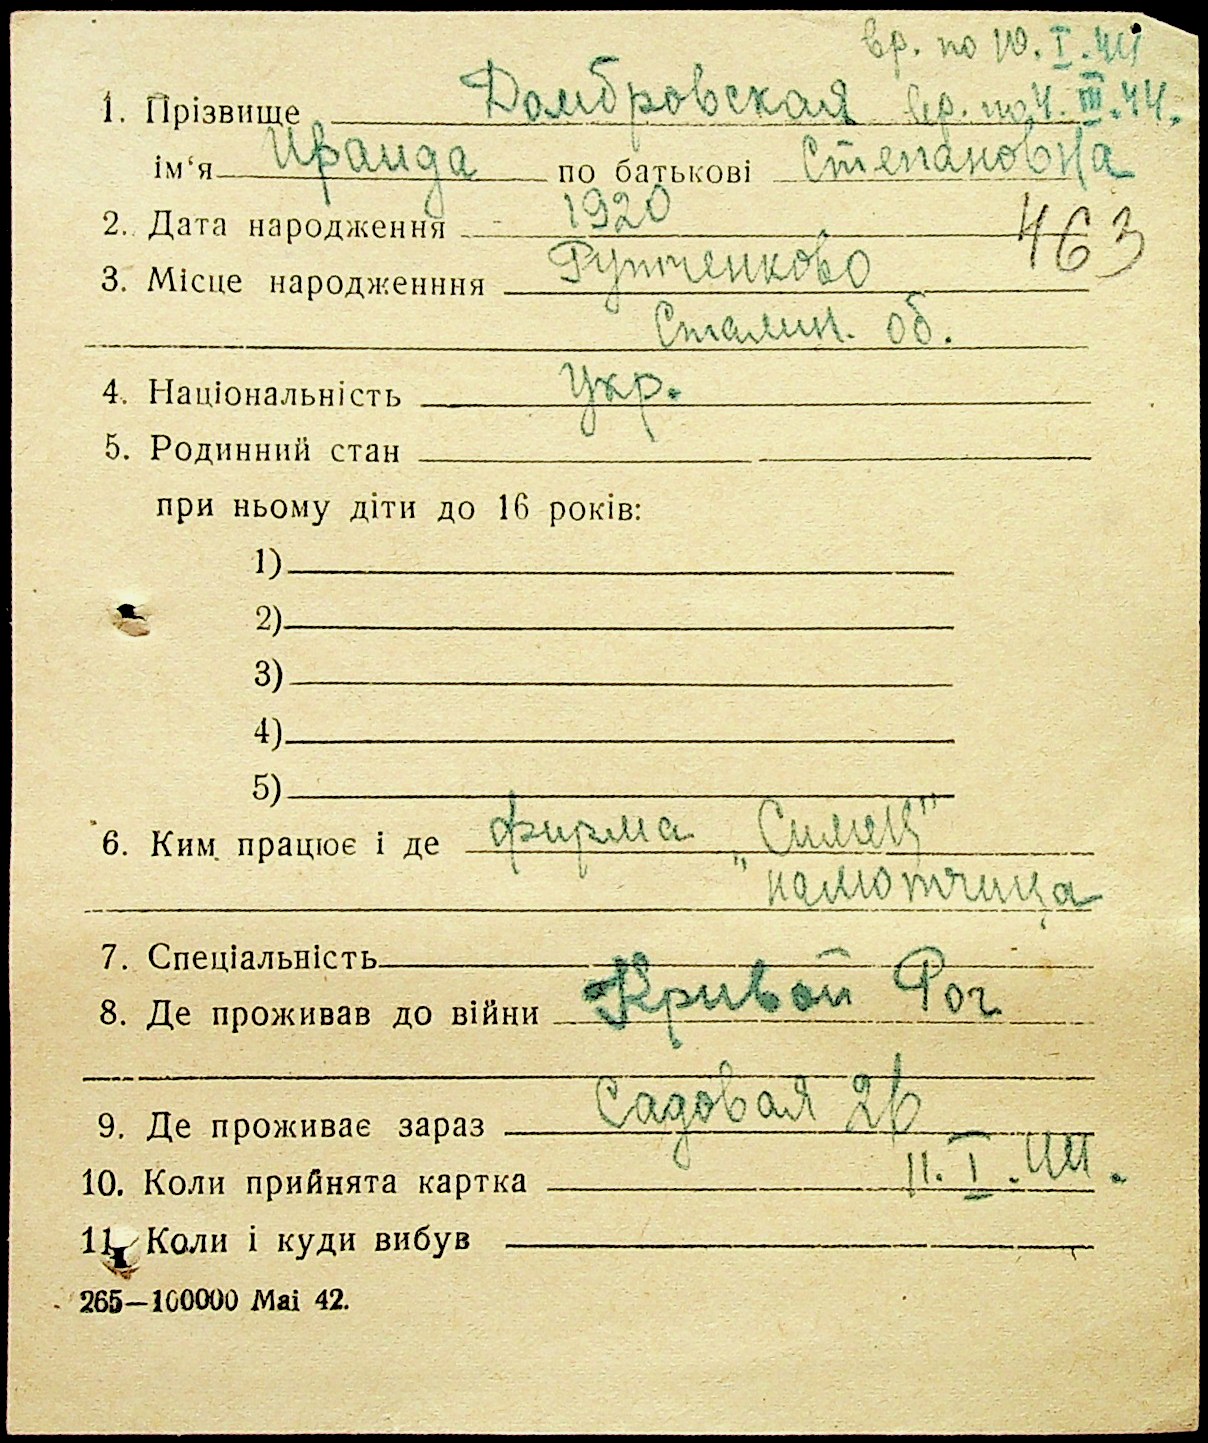 вр. по 10. I. 44
1. Прізвище Домбровская вр. по 4. III. 44.
ім‘я Ираида по батькові Степановна
2. Дата народження 1920 463
3. Місце народженння Рутченково
Сталин. об.
4. Національність Укр.
5. Родинний стан
при ньому діти до 16 років:
1)
2)
3)
4)
5)
6. Ким працює і де фирма
намотчица
7. Спеціальність
8. Де проживав до війни Кривой Рог
9. Де проживає зараз Садовая
10. Коли прийнята картка 11. I. 44.
11. Коли і куди вибув
265—100000 Маі 42.